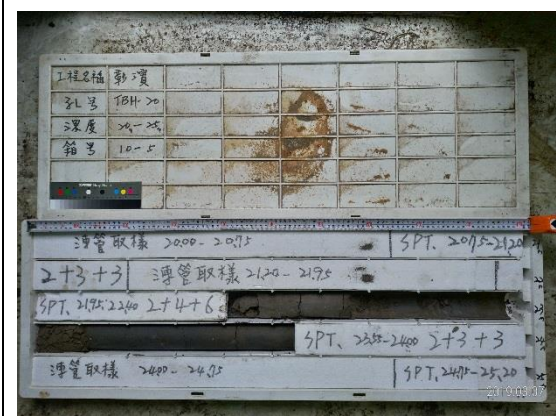 工程名稱 彰濱
孔號 TBH-20
深度 20-25
箱号 10-5
薄管取樣 20.00-20.75 SPT. 20.75-21.20
2+3+3 薄管取樣 21.20-21.95
SPT. 21.95-22.40 2+4+6
SPT. 23.55-24.00 2+3+3
薄管取樣 24.00-24.75 SPT. 24.75-25.20
2019.03.07